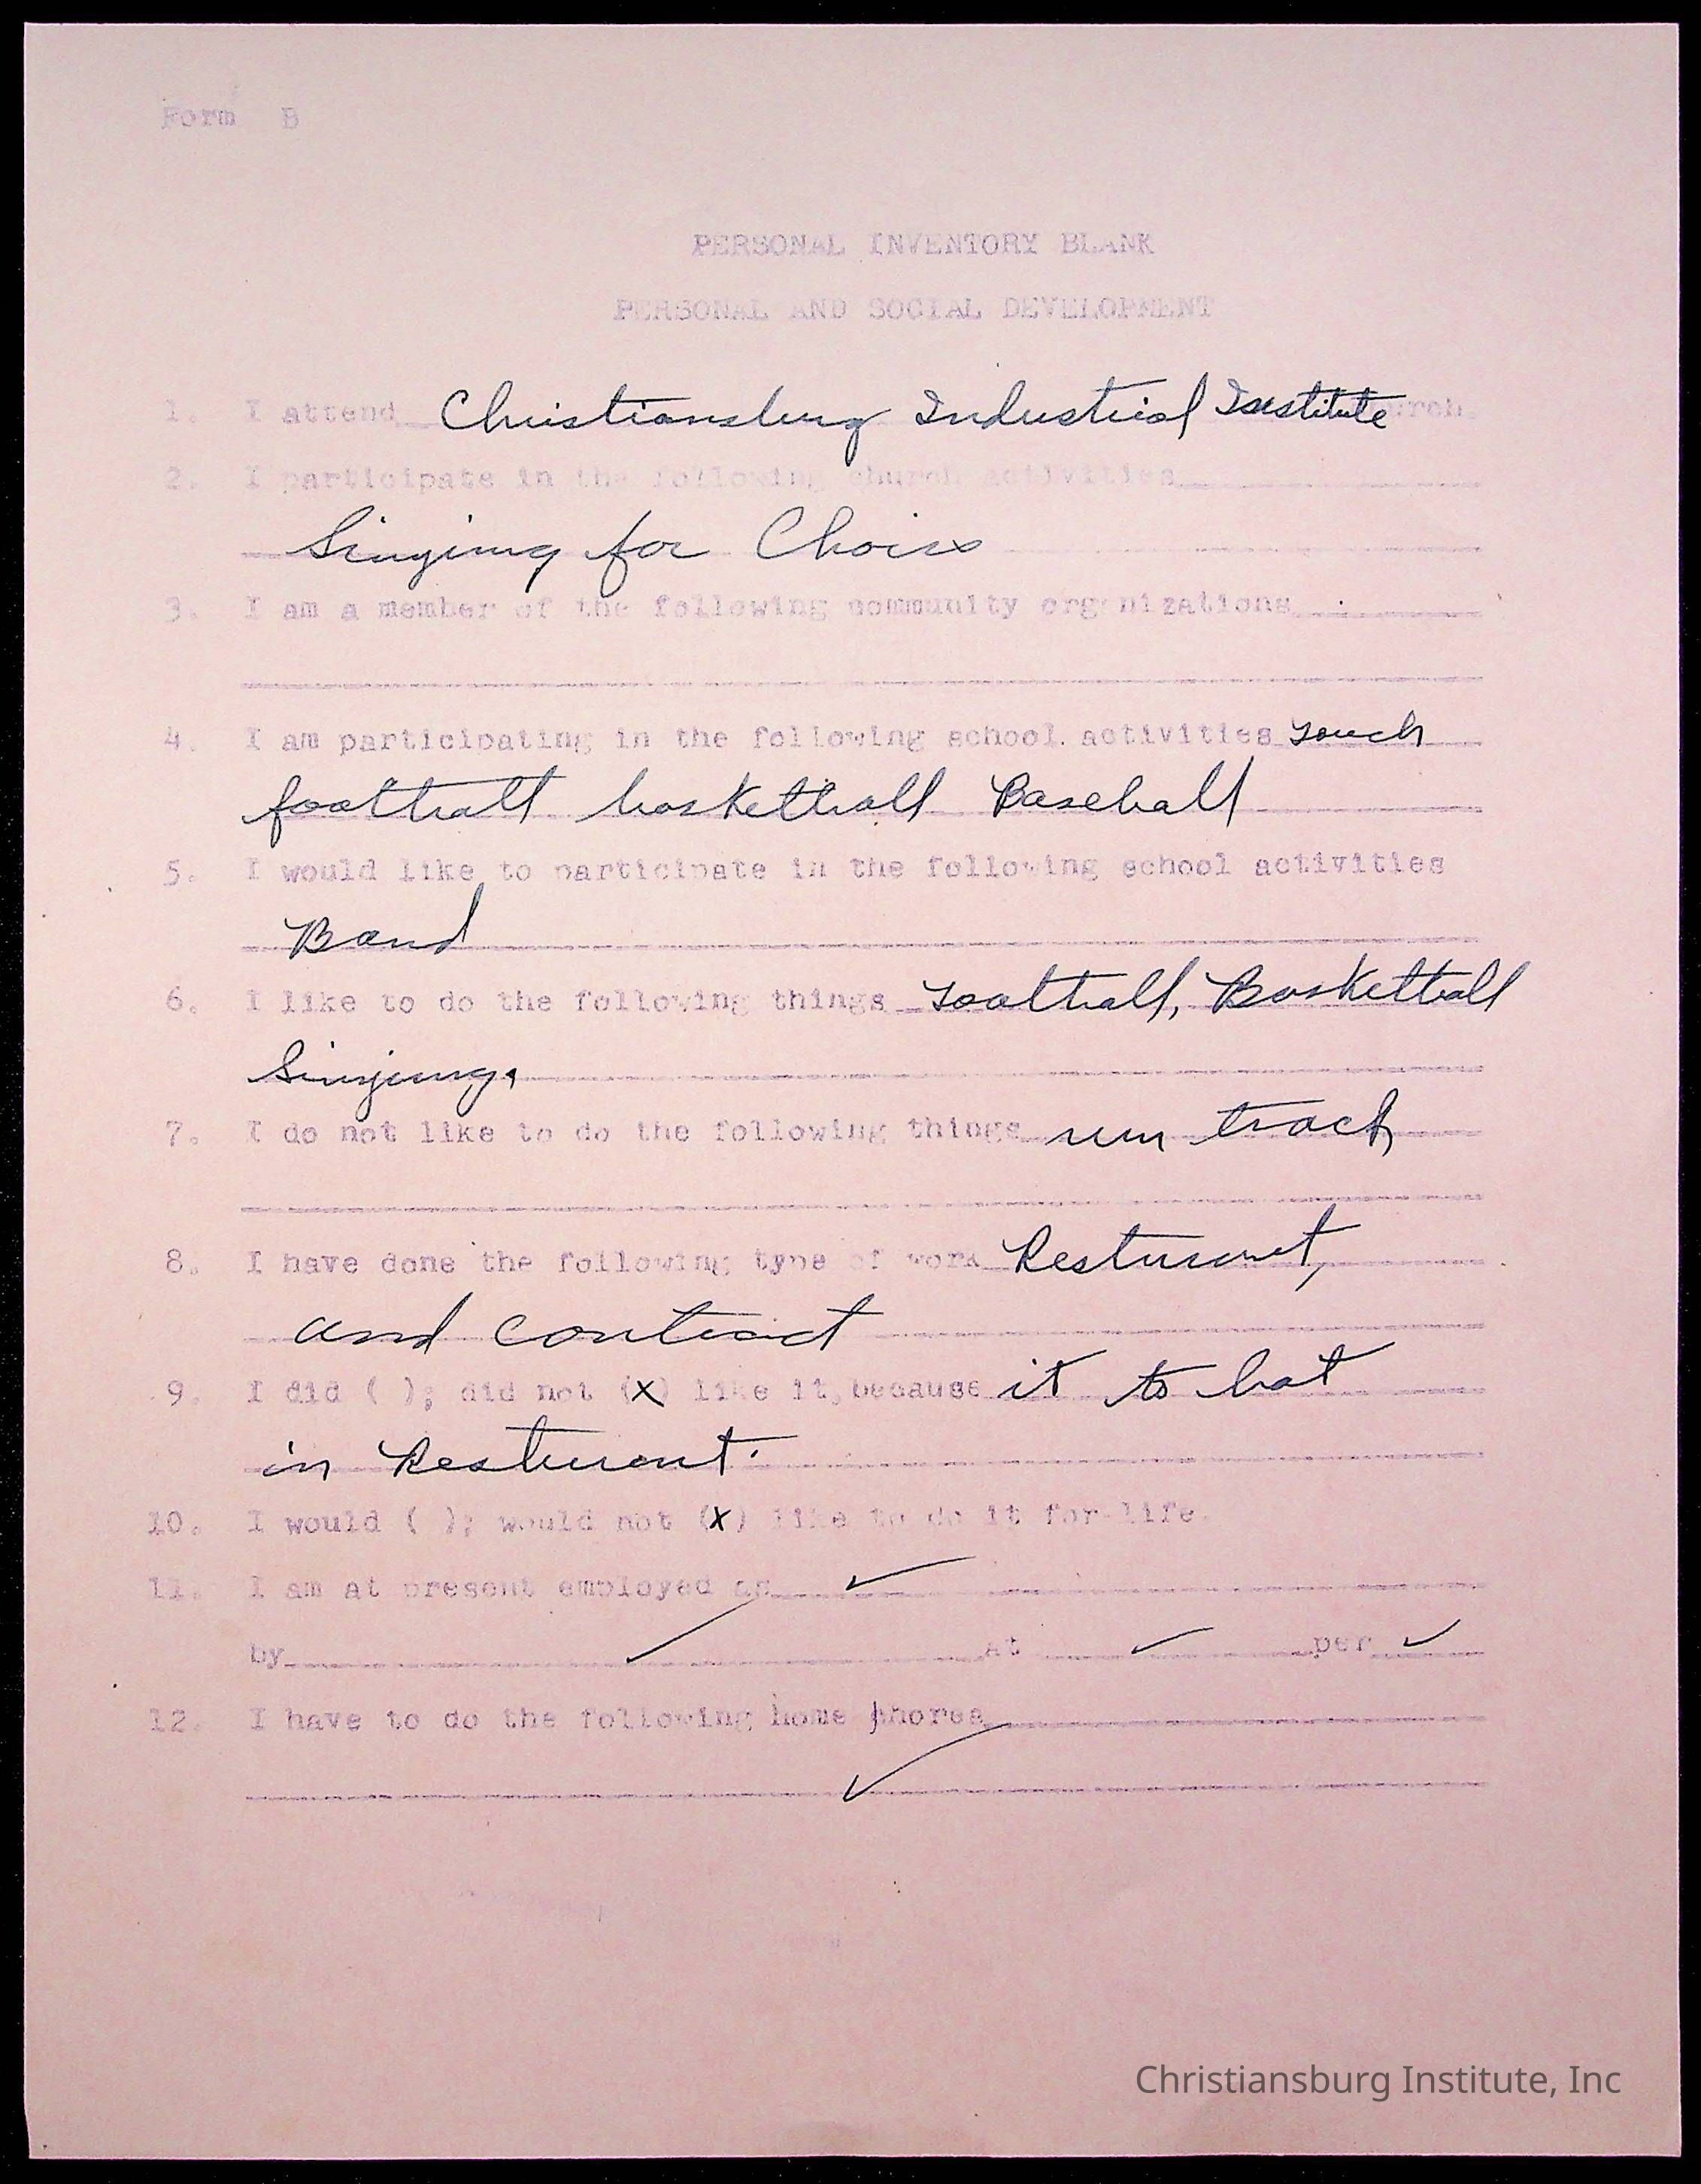 Form B
PERSONAL INVENTORY BLANK
PERSONAL AND SOCIAL DEVELOPMENT
1. I attend Christiansburg Industrial Institute church.
2. I participate in the following church activities
Singing for Choir
3. I am a member of the following community organizations
4. I am participating in the following school activities touch
football basketball Baseball
5. I would like to participate in the following school activities
Band
6. I like to do the following things football, Basketball
Singing.
7. I do not like to do the following things run track
8. I have done the following type of work Resturant,
and contract
9. I did ( ); did not (x) like it, because it to hot
in Resturant.
10. I would ( ); would not (x) like to do it for life.
11. I am at present employed as ✓
by ✓ at ✓ per ✓
12. I have to do the following home chores
✓
Christiansburg Institute, Inc